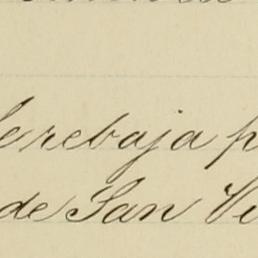 Se rebaja p
de San Vi